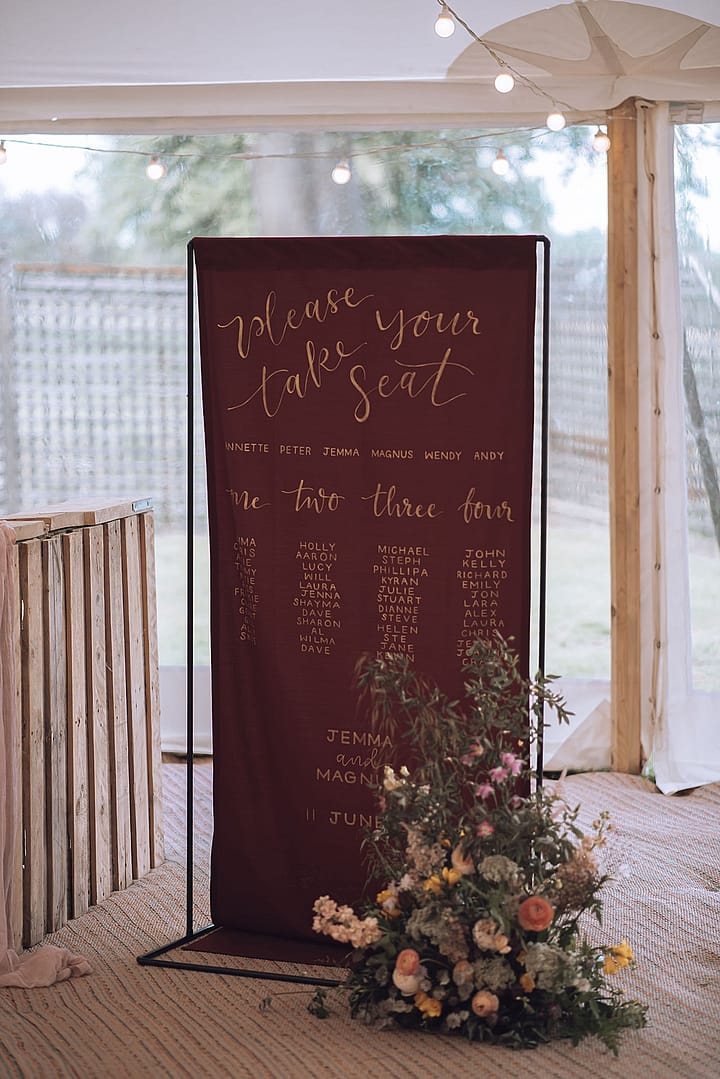 please your
take seat
ANNETTE PETER JEMMA MAGNUS WENDY ANDY
two three four
HOLLY MICHAEL JOHN
AARON STEPH KELLY
LUCY PHILLIPA RICHARD
WILL KYRAN EMILY
LAURA JULIE JON
JENNA STUART LARA
SHAYMA DIANNE ALEX
DAVE STEVE LAURA
SHARON HELEN CHRIS
AL STE
WILMA JANE
DAVE
JEMMA
and
MAGNUS
11 JUNE